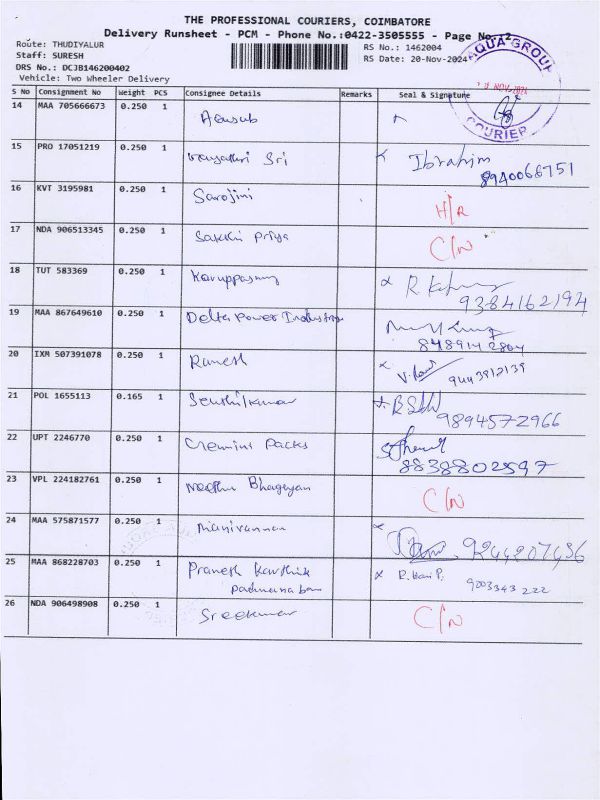 THE PROFESSIONAL COURIERS, COIMBATORE
Delivery Runsheet - PCM - Phone No.:0422-3505555 - Page No. 2
Route: THUDIYALUR RS No.: 1462004
Staff: SURESH RS Date: 20-Nov-2024
DRS No.: DCJB146200402
Vehicle: Two Wheeler Delivery
AQUA GROUP
COURIER
S No Consignment No Weight PCS Consignee Details Remarks Seal & Signature
14 MAA 705666673 0.250 1
15 PRO 17051219 0.250 1 Sri Ibrahim
8940066751
16 KVT 3195981 0.250 1 Sarojini H/R
17 NDA 906513345 0.250 1 Sakthi Priya C/N
18 TUT 583369 0.250 1 Karuppasamy R
9384162194
19 MAA 867649610 0.250 1 Delta Power Industries
8489142804
20 IXM 507391078 0.250 1 Ramesh 9443912139
21 POL 1655113 0.165 1 Senthilkumar
9894572966
22 UPT 2246770 0.250 1 Gemini Packs
8838802597
23 VPL 224182761 0.250 1 Madhu Bhagyan C/N
24 MAA 575871577 0.250 1 Manivannan 9244207436
25 MAA 868228703 0.250 1 Pranesh Karthik R. Hari P.
Padmanaban 9003343222
26 NDA 906498908 0.250 1 Sreekumar C/N